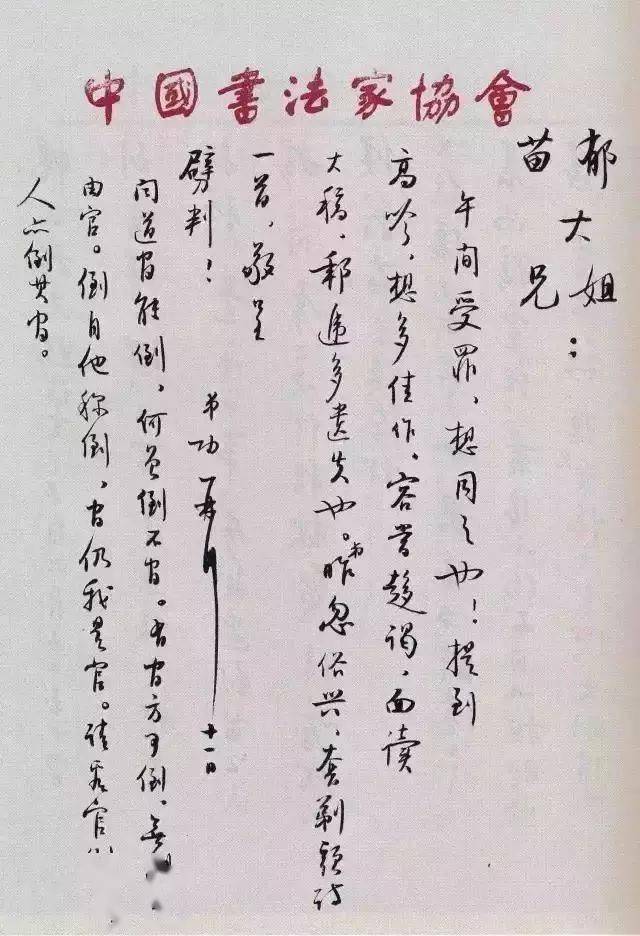 中國書法家協會
郁大姐：
苗兄
午间受罪，想同之也！提到
高吟，想多佳作，容当趋谒，面读
大稿，邮递多遗失也。昨弟忽俗兴，套剃头诗
一首，敬呈
劈判！
弟功 再拜 十一日
闻道官能倒，何曾倒不官。有官方可倒，无
由官。倒自他称倒，官仍我是官。请看官
人亦倒其官。